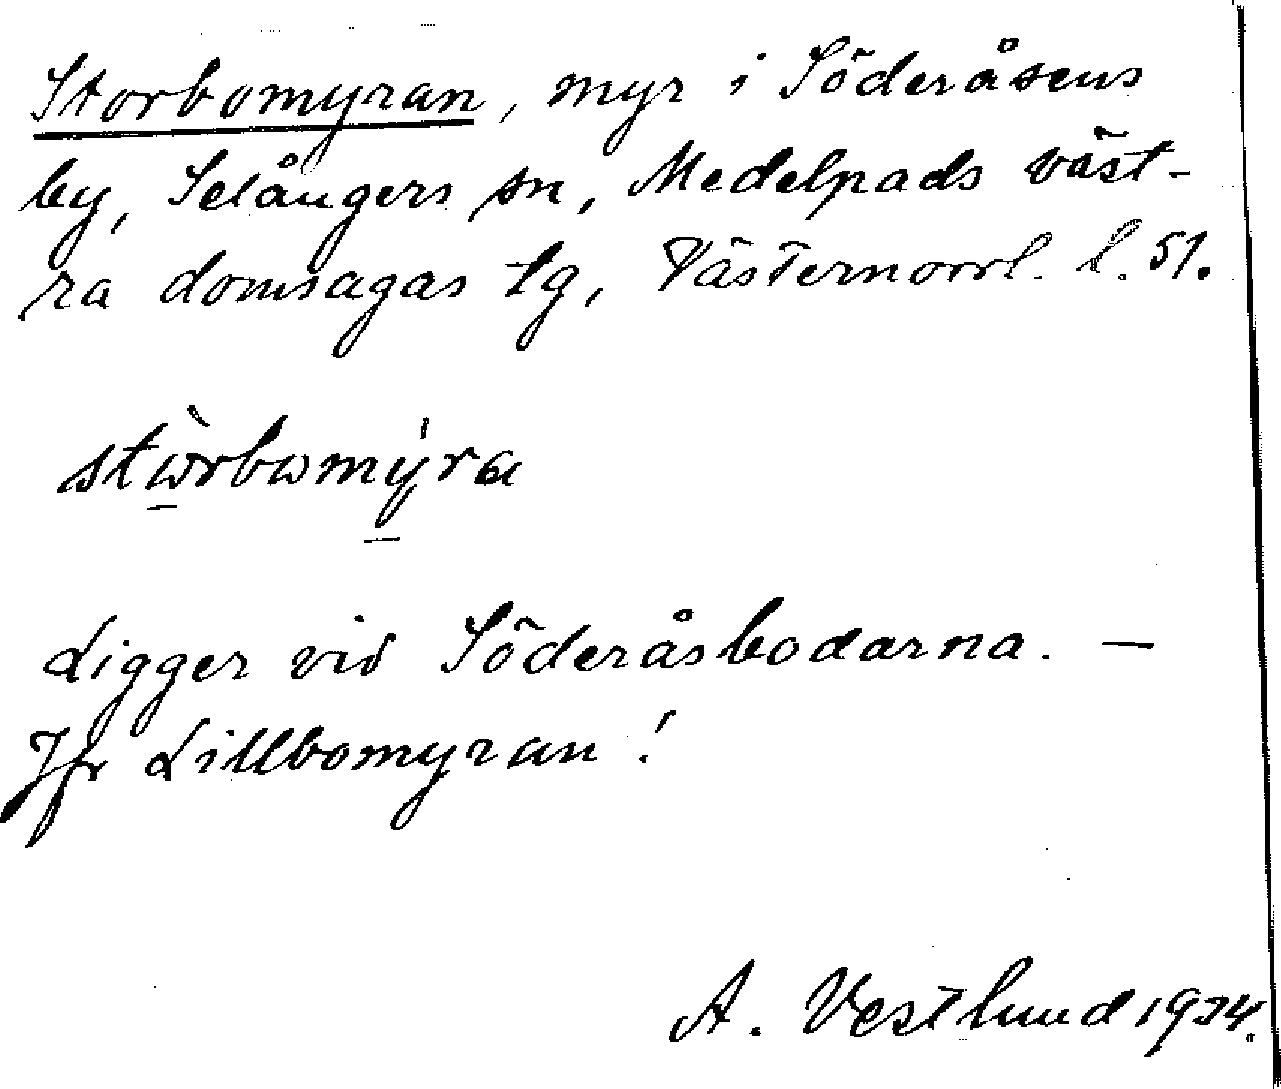 Storbomyran, myr i Söderåsens
by, Selångers sn, Medelpads väst-
ra domsagas tg, Västernorrl. l. 51.
stὼrbωmy̍ra
Ligger vid Söderåsbodarna. —
Jfr Lillbomyran!
A. Vestlund 1924.